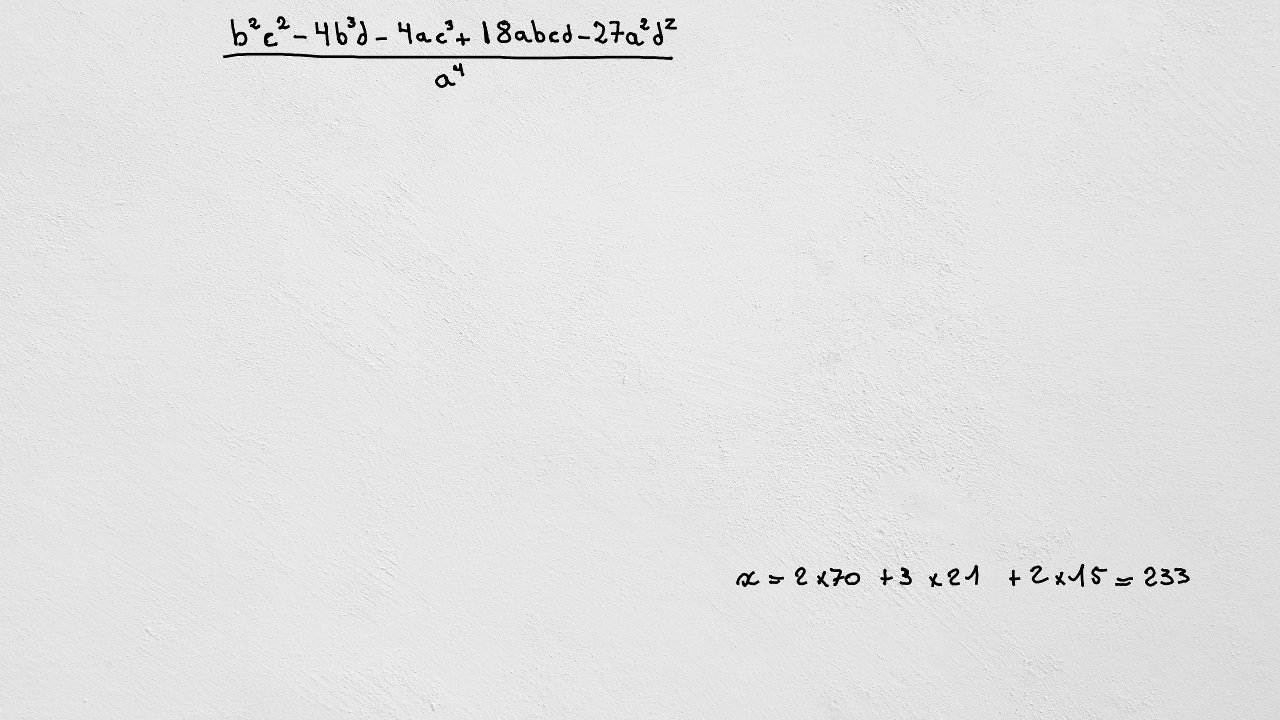 b²c² - 4b³d - 4ac³ + 18abcd - 27a²d²
a⁴
x = 2 x 70 + 3 x 21 + 2 x 15 = 233